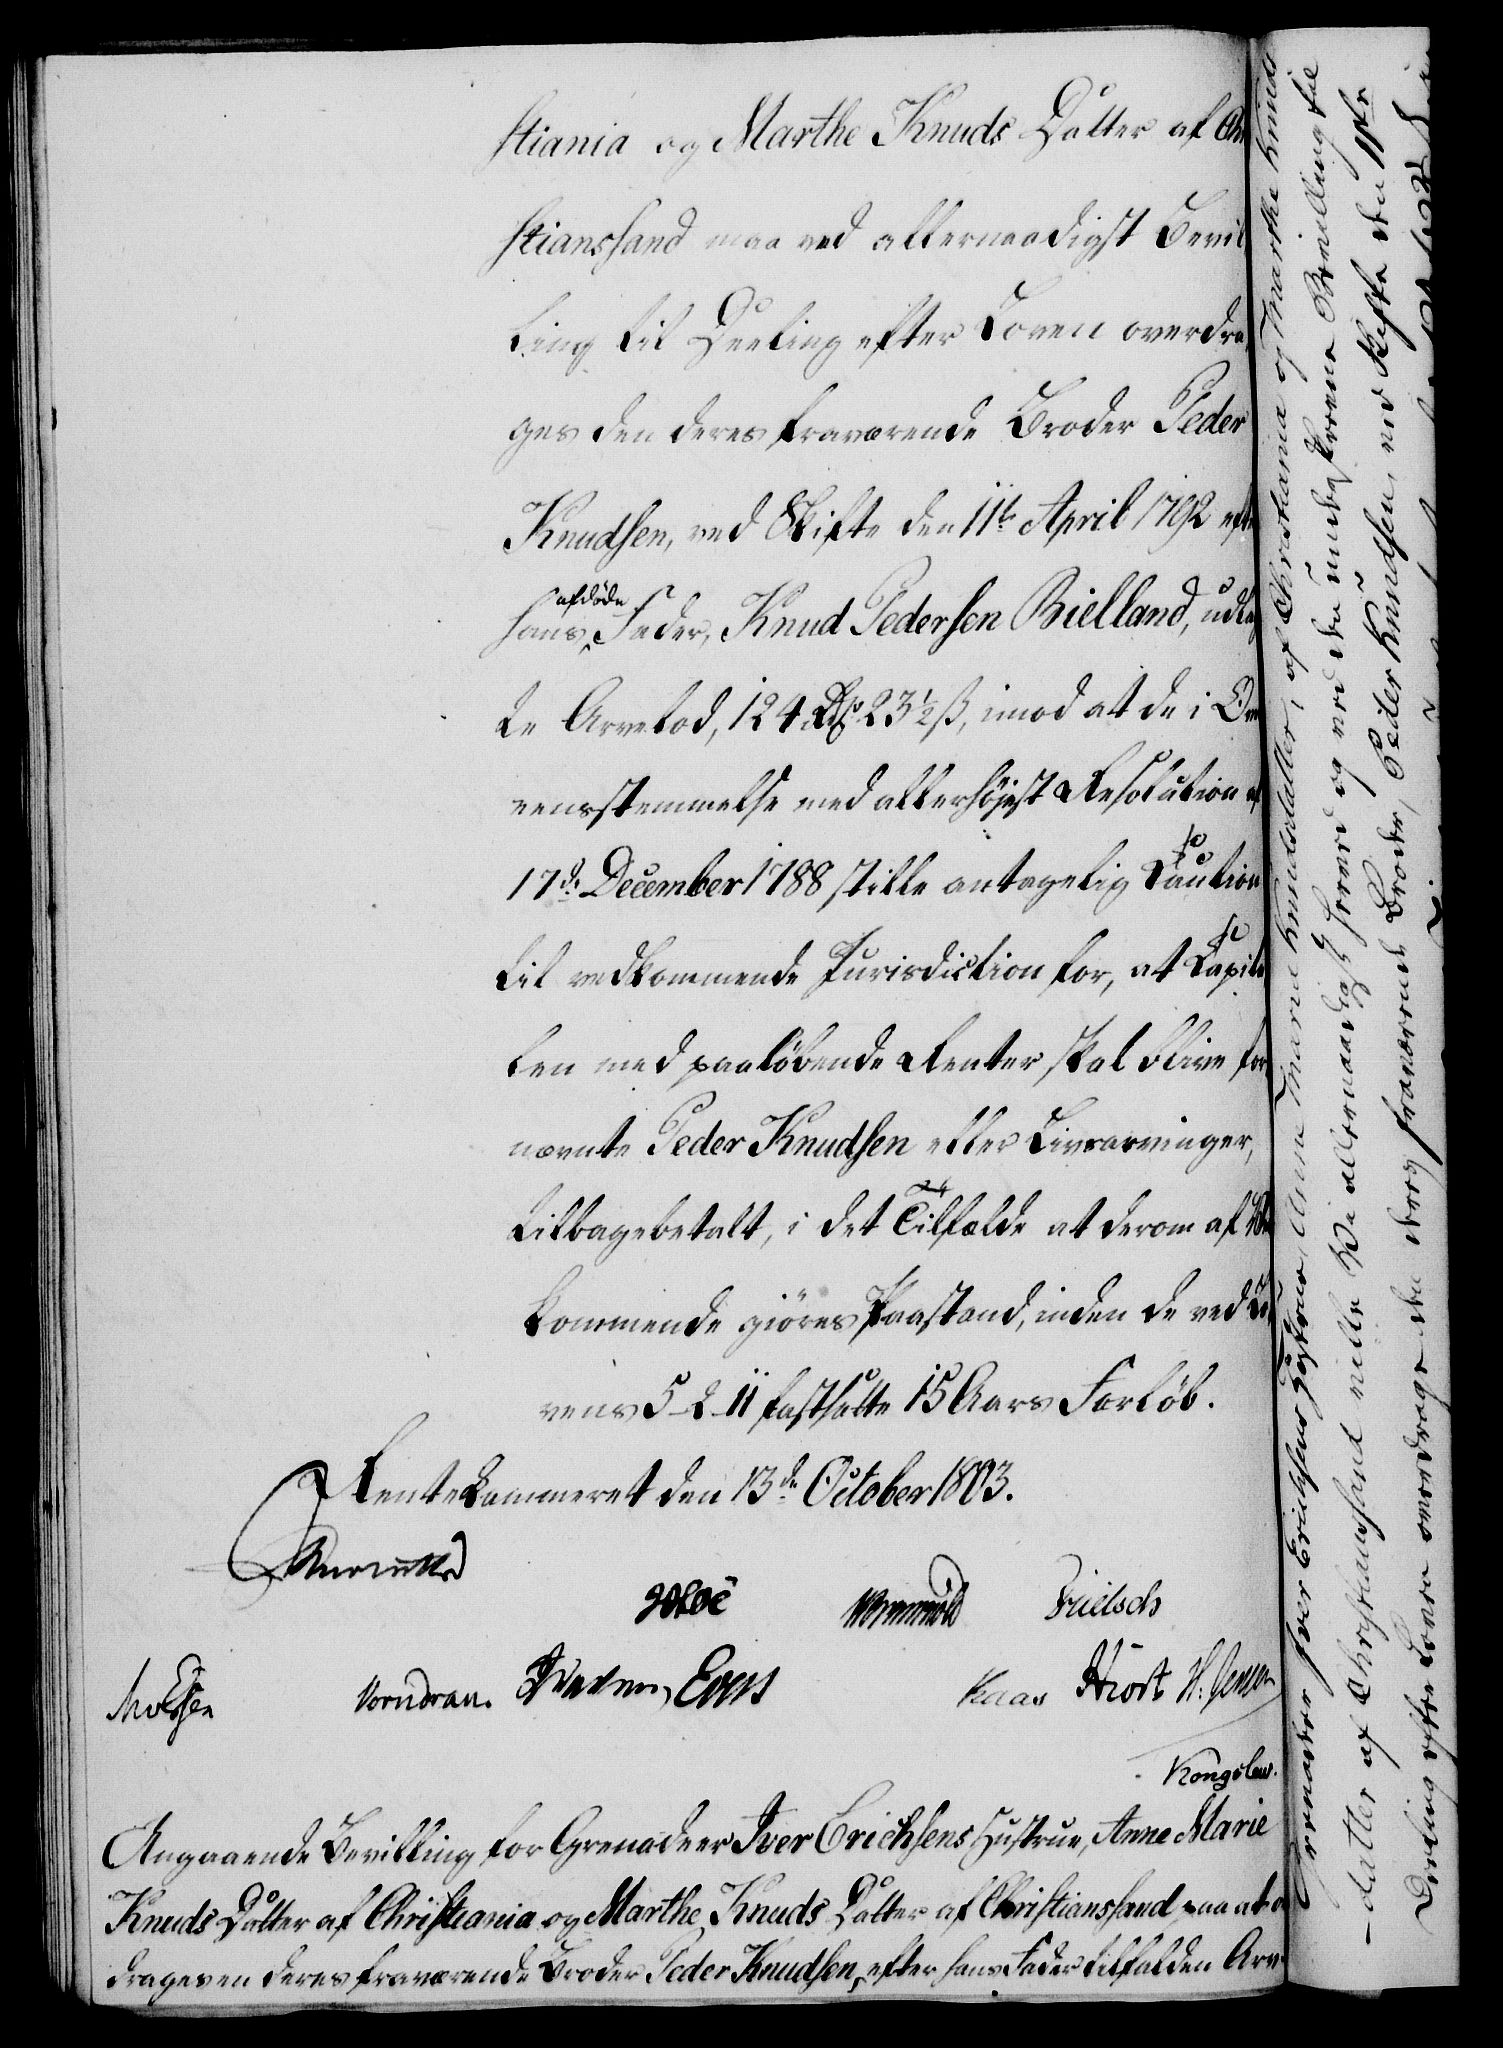 stiania og Marthe Knuds Datter af Chri
stianssand maa ved allernaadigst Bevil
ling til Deeling efter Loven overdra
ges den deres fraværende Broder Peder
Knudsen, ved Skifte den 11te April 1792 efter
hans afdøde Fader, Knud Pedersen Bielland, udlag
te Arvelod, 124 Rdr 23½ ß, imod at de i Ov
eensstemmelse med allerhøjest Resolution af
17de December 1788 stille antagelig Caution
til vedkommende Jurisdiction for, at Capita
len med paaløbende Renter skal blive for
nævnte Peder Knudsen eller Livsarvinger,
tilbagebetalt, i det Tilfælde at derom af Ved
kommende giøres Paastand, inden de ved Lo
vens 5-2-11 fastsatte 15 Aars Forløb.
Rentekammeret den 13de October 1803.
Frielsch
Vorndran. Kaas Hiort H: Jensen
Kongslew.
Angaaende Bevilling for Grenadeer Iver Erichsens Hustrue, Anne Marie
Knuds Datter af Christiania og Marthe Knuds Datter af Christianssand paa at o
drages en deres fraværende Broder Peder Knudsen, efter hans Fader tilfalden Arv
Grenadeer Iver Erichsens Hustrue Anne Marie Knudsdatter, af Christiania og Marthe Knuds
-datter af Christianssand ville Vi allernaadigst herved og ved den underskrevne Bevilling til
Deeling efter Loven overdrage den deres fraværende Broder, Peder Knudsen, ved Skifte den 11te